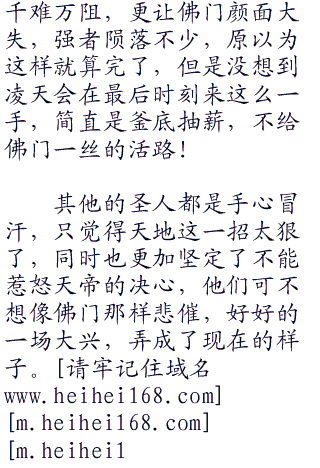 千难万阻，更让佛门颜面大
失，强者陨落不少，原以为
这样就算完了，但是没想到
凌天会在最后时刻来这么一
手，简直是釜底抽薪，不给
佛门一丝的活路！
其他的圣人都是手心冒
汗，只觉得天地这一招太狠
了，同时也更加坚定了不能
惹怒天帝的决心，他们可不
想像佛门那样悲催，好好的
一场大兴，弄成了现在的样
子。[请牢记住域名
www.heihei168.com]
[m.heihei168.com]
[m.heihei1